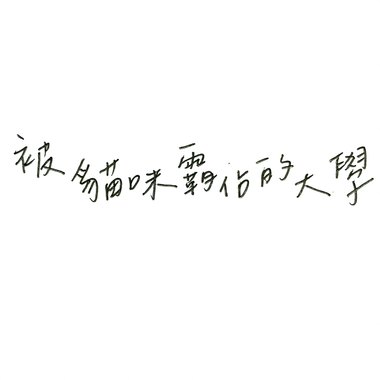 被貓咪霸佔的大學